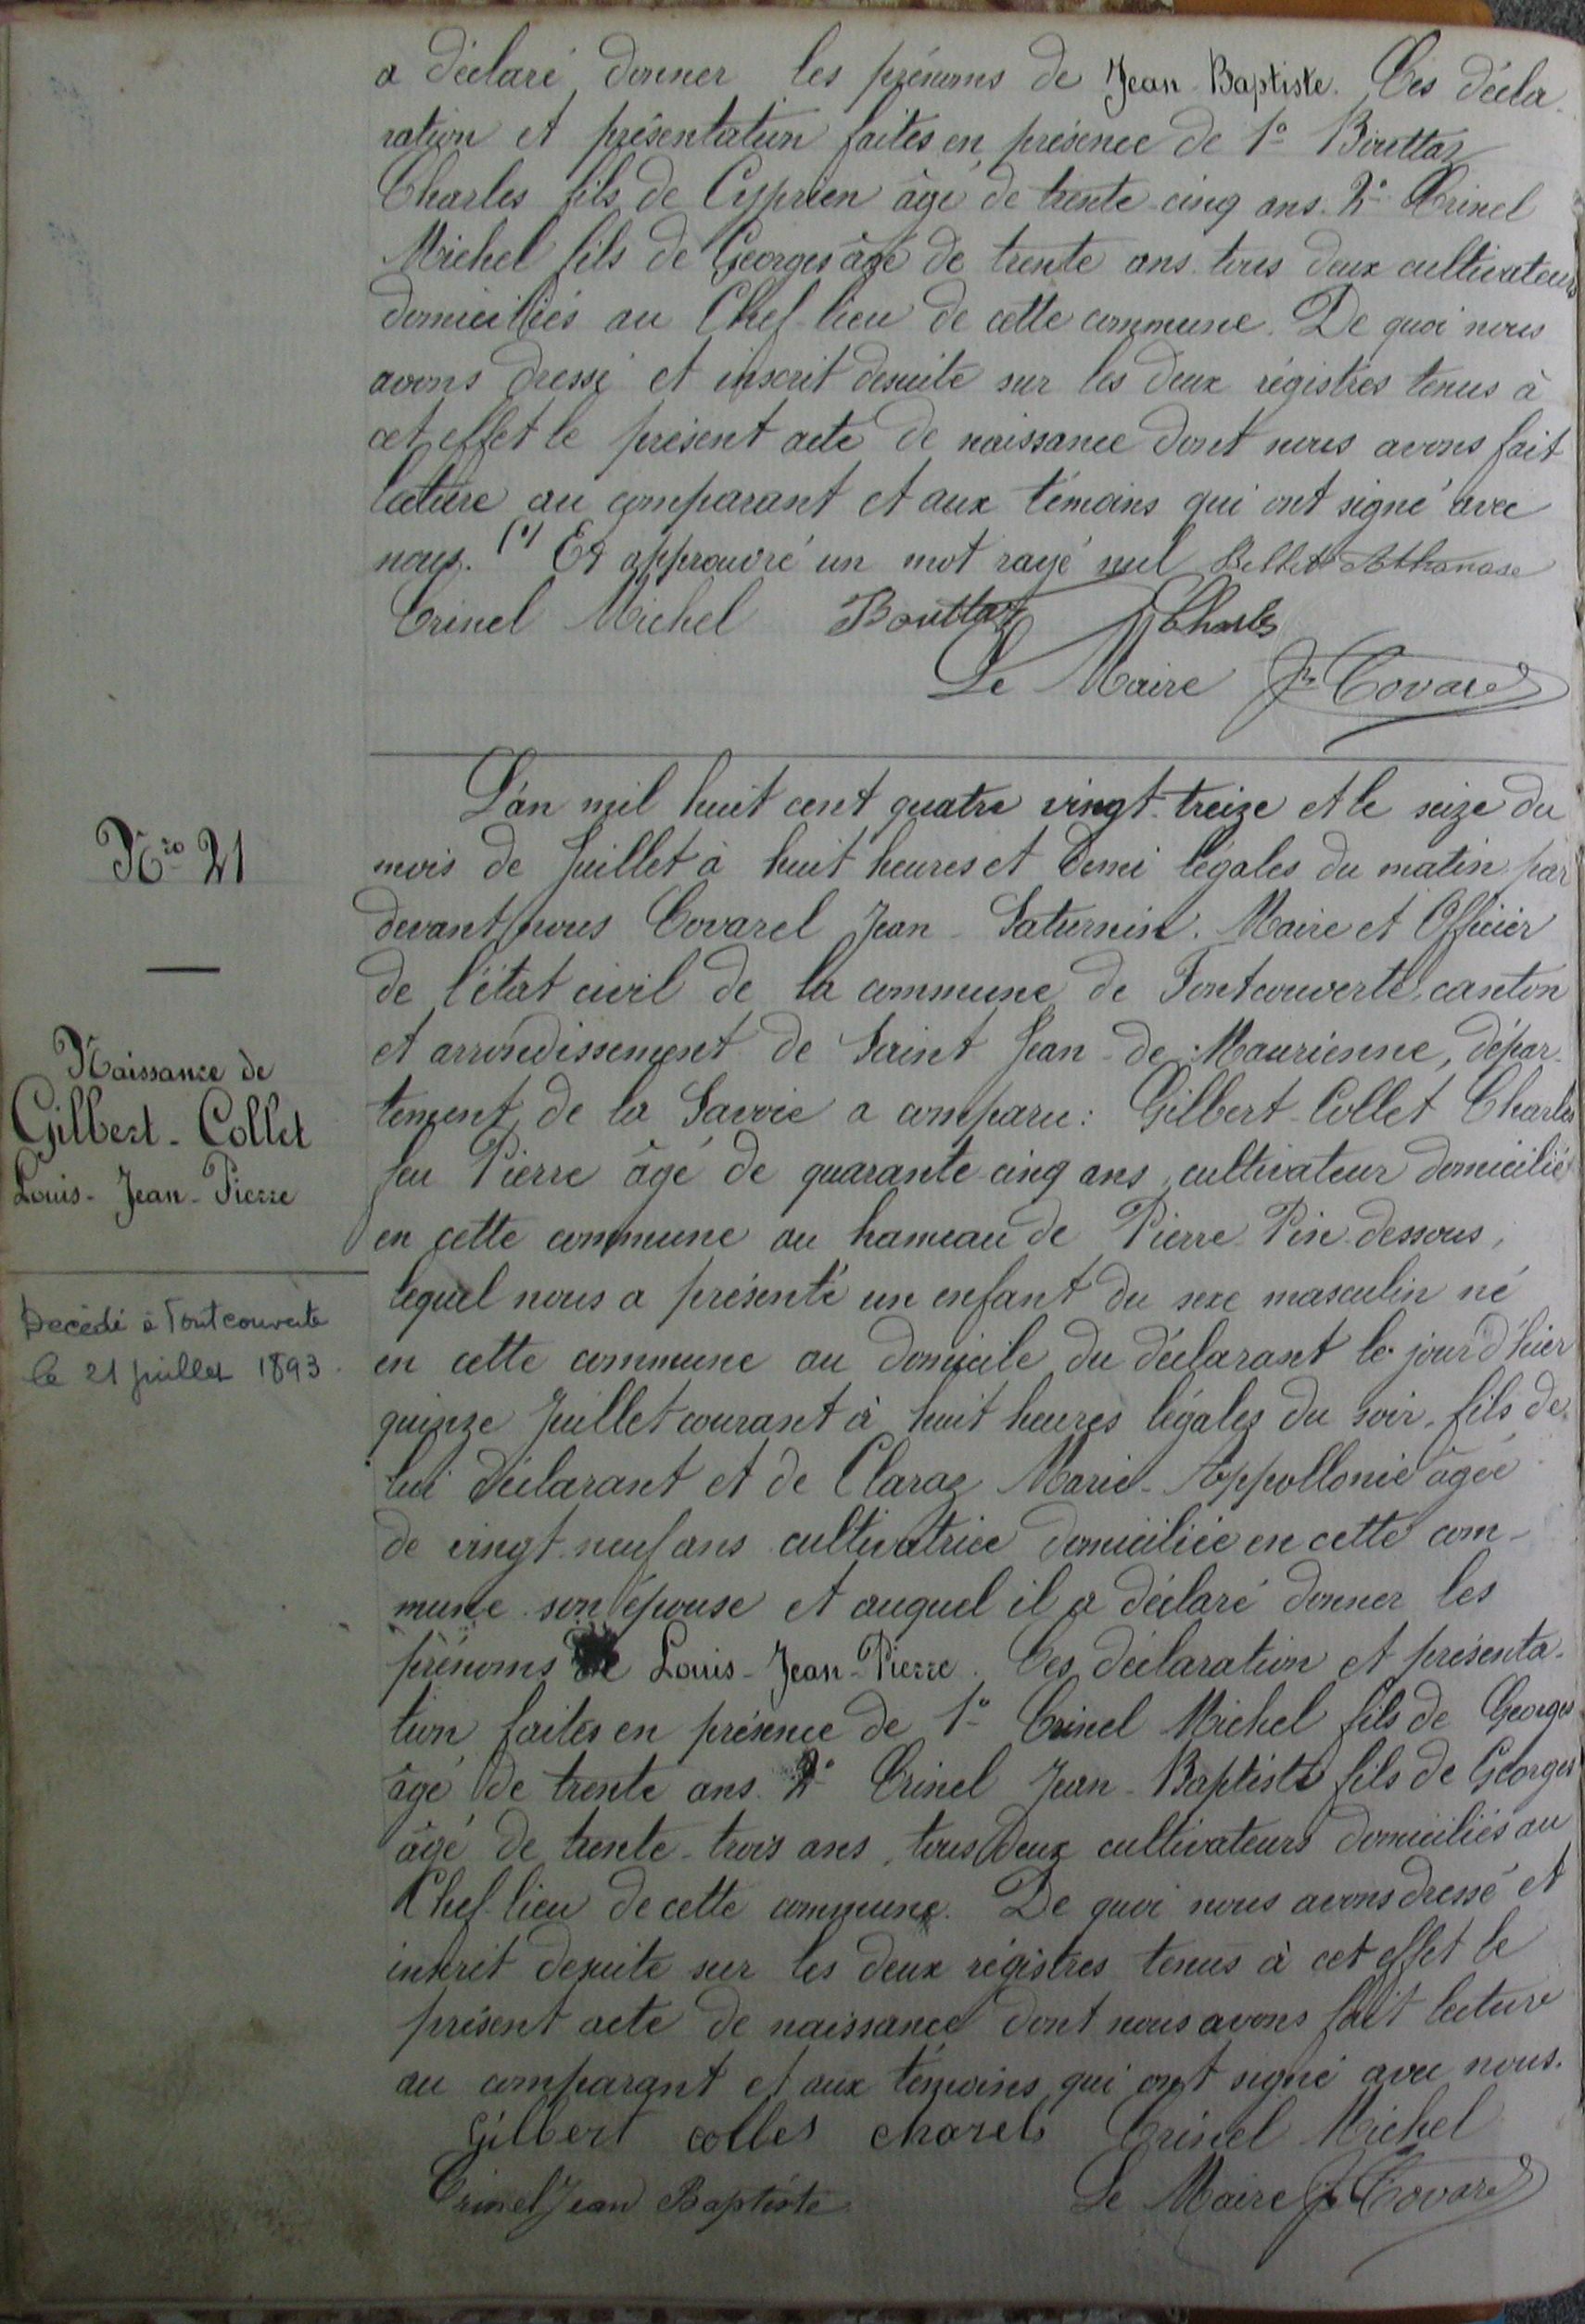 a déclaré donner les prénoms de Jean-Baptiste. Ces décla-
ration et présentation faites en présence de 1° Bouttaz
Charles fils de Cyprien âgé de trente-cinq ans. 2° Crinel
Michel fils de Georges âgé de trente ans. tous deux cultivateurs
domiciliés au Chef-lieu de cette commune. De quoi nous
avons dressé et inscrit desuite sur les deux régistres tenus à
cet effet le présent acte de naissance dont nous avons fait
lecture au comparant et aux témoins qui ont signé avec
nous. (1) Et approuvé un mot rayé nul Bellet Athanase
Crinel Michel Bouttaz Charles
Le Maire Jn Covarel
Nro 21
Naissance de
Gilbert-Collet
Louis-Jean-Pierre
Décédé à Fontcouverte
le 21 juillet 1893.
L'an mil huit cent quatre vingt-treize et le seize du
mois de Juillet à huit heures et demi légales du matin par
devant nous Covarel Jean-Saturnin. Maire et Officier
de l'état civil de la commune de Fontcouverte, canton
et arrondissement de Saint Jean-de-Maurienne, dépar-
tement de la Savoie a comparu: Gilbert-Collet Charles
feu Pierre âgé de quarante-cinq ans, cultivateur domicilié
en cette commune au hameau de Pierre-Pin-dessous,
lequel nous a présenté un enfant du sexe masculin né
en cette commune au domicile du déclarant le jour d'hier
quinze Juillet courant à huit heures légales du soir, fils de
lui déclarant et de Claraz Marie-Appollonie âgée
de vingt-neuf ans cultivatrice domiciliée en cette com-
mune son épouse et auquel il a déclaré donner les
prénoms de Louis-Jean-Pierre. Ces déclaration et présenta-
tion faites en présence de 1° Crinel Michel fils de Georges
âgé de trente ans. 2° Crinel Jean-Baptiste fils de Georges
âgé de trente-trois ans, tous deux cultivateurs domiciliés au
Chef-lieu de cette commune. De quoi nous avons dressé et
inscrit desuite sur les deux régistres tenus à cet effet le
présent acte de naissance dont nous avons fait lecture
au comparant et aux témoins qui ont signé avec nous.
Gilbert collet charels Crinel Michel
Crinel Jean Baptiste Le Maire Jn Covarel